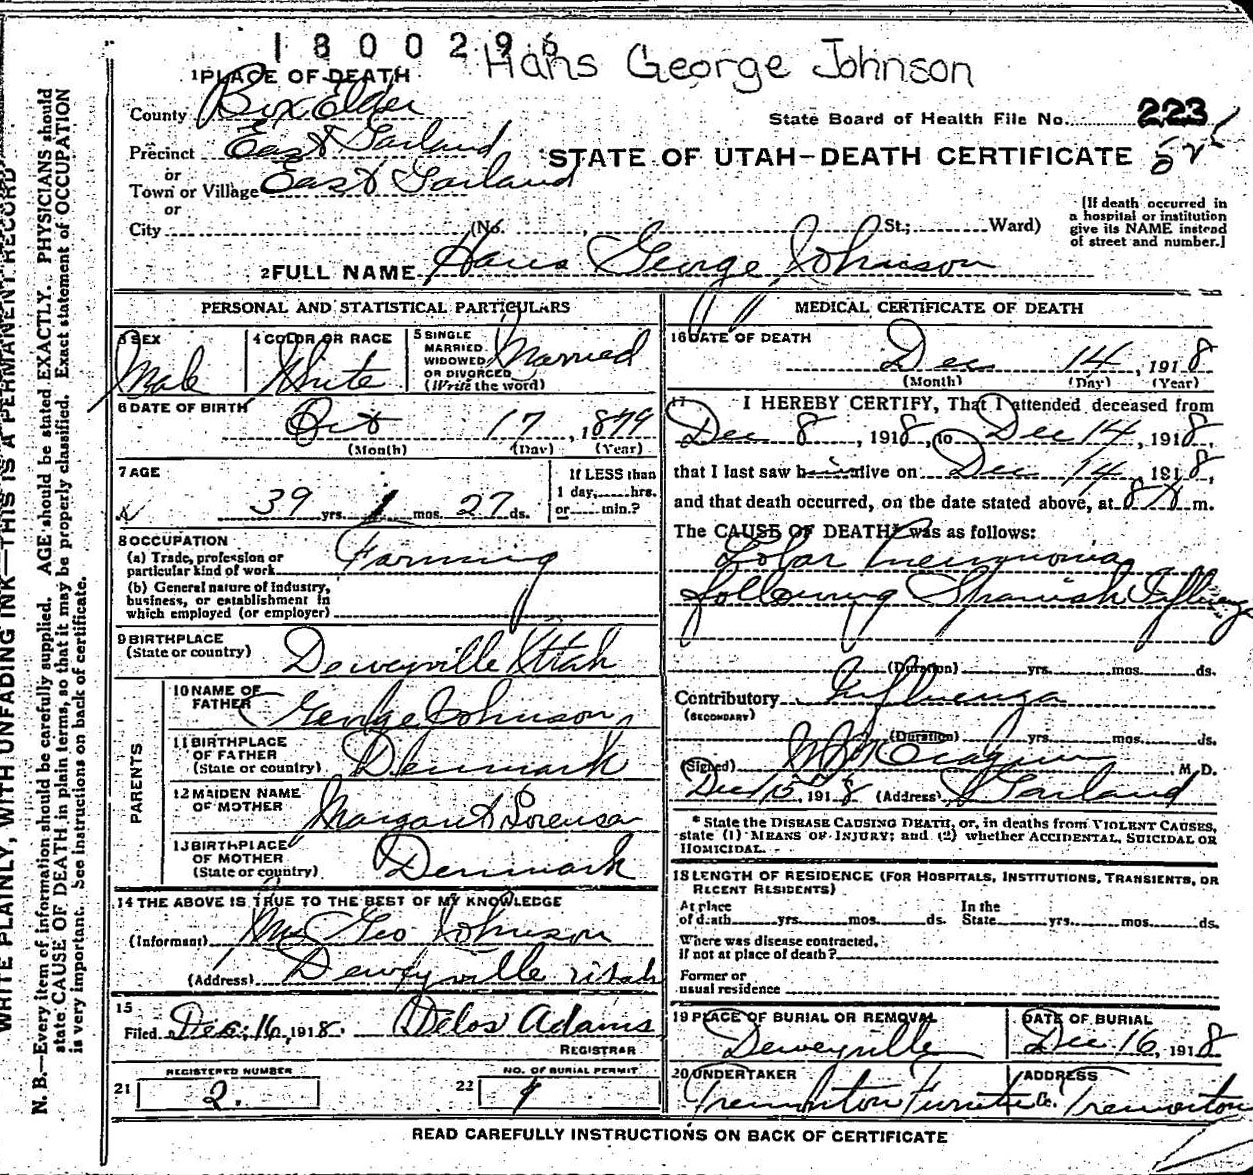 1800296
Hans George Johnson
1 PLACE OF DEATH
County Box Elder
State Board of Health File No. 223
Precinct East Garland
STATE OF UTAH—DEATH CERTIFICATE
or
Town or Village East Garland
or
City (No. St.; Ward)
[If death occurred in
a hospital or institution
give its NAME instead
of street and number.]
2 FULL NAME Hans George Johnson
PERSONAL AND STATISTICAL PARTICULARS
3 SEX
Male
4 COLOR OR RACE
White
5 SINGLE
MARRIED,
WIDOWED
OR DIVORCED
(Write the word)
Married
6 DATE OF BIRTH
Oct 17, 1879
(Month) (Day) (Year)
7 AGE
39 yrs. 1 mos. 27 ds.
If LESS than
1 day, hrs.
or min.?
8 OCCUPATION
(a) Trade, profession or
particular kind of work Farming
(b) General nature of industry,
business, or establishment in
which employed (or employer)
9 BIRTHPLACE
(State or country) Deweyville Utah
PARENTS
10 NAME OF
FATHER George Johnson
11 BIRTHPLACE
OF FATHER
(State or country) Denmark
12 MAIDEN NAME
OF MOTHER Margaret Sorenson
13 BIRTHPLACE
OF MOTHER
(State or country) Denmark
14 THE ABOVE IS TRUE TO THE BEST OF MY KNOWLEDGE
(Informant) Mrs Geo Johnson
(Address) Deweyville Utah
15
Filed Dec. 16, 1918. Delos Adams
REGISTRAR
REGISTERED NUMBER
21 2.
NO. OF BURIAL PERMIT
22
MEDICAL CERTIFICATE OF DEATH
16 DATE OF DEATH
Dec 14, 1918
(Month) (Day) (Year)
17 I HEREBY CERTIFY, That I attended deceased from
Dec 8, 1918, to Dec 14, 1918,
that I last saw him alive on Dec 14, 1918,
and that death occurred, on the date stated above, at m.
The CAUSE OF DEATH* was as follows:
Lobar Pneumonia
following Spanish Influenza
(Duration) yrs. mos. ds.
Contributory Influenza
(SECONDARY)
(Duration) yrs. mos. ds.
(Signed) M. D.
Dec 15, 1918 (Address) Garland
* State the DISEASE CAUSING DEATH, or, in deaths from VIOLENT CAUSES,
state (1) MEANS OF INJURY; and (2) whether ACCIDENTAL, SUICIDAL OR
HOMICIDAL.
18 LENGTH OF RESIDENCE (FOR HOSPITALS, INSTITUTIONS, TRANSIENTS, OR
RECENT RESIDENTS)
At place
of death yrs. mos. ds.
In the
State yrs. mos. ds.
Where was disease contracted,
if not at place of death?
Former or
usual residence
19 PLACE OF BURIAL OR REMOVAL
Deweyville
DATE OF BURIAL
Dec. 16, 1918
20 UNDERTAKER
Tremonton Furniture Co.
ADDRESS
Tremonton
READ CAREFULLY INSTRUCTIONS ON BACK OF CERTIFICATE
WRITE PLAINLY, WITH UNFADING INK—THIS IS A PERMANENT RECORD
N. B.—Every item of information should be carefully supplied. AGE should be stated EXACTLY. PHYSICIANS should
state CAUSE OF DEATH in plain terms, so that it may be properly classified. Exact statement of OCCUPATION
is very important. See instructions on back of certificate.